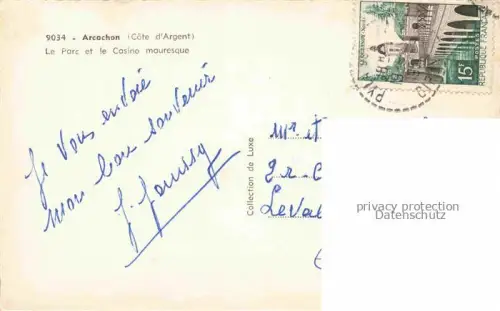 9034 - Arcachon (Côte d'Argent)
Le Parc et le Casino mauresque
Je vous envoie
mon bon souvenir
Collection de Luxe
15F
REPUBLIQUE FRANÇAISE
Mr
Leval
privacy protection
Datenschutz